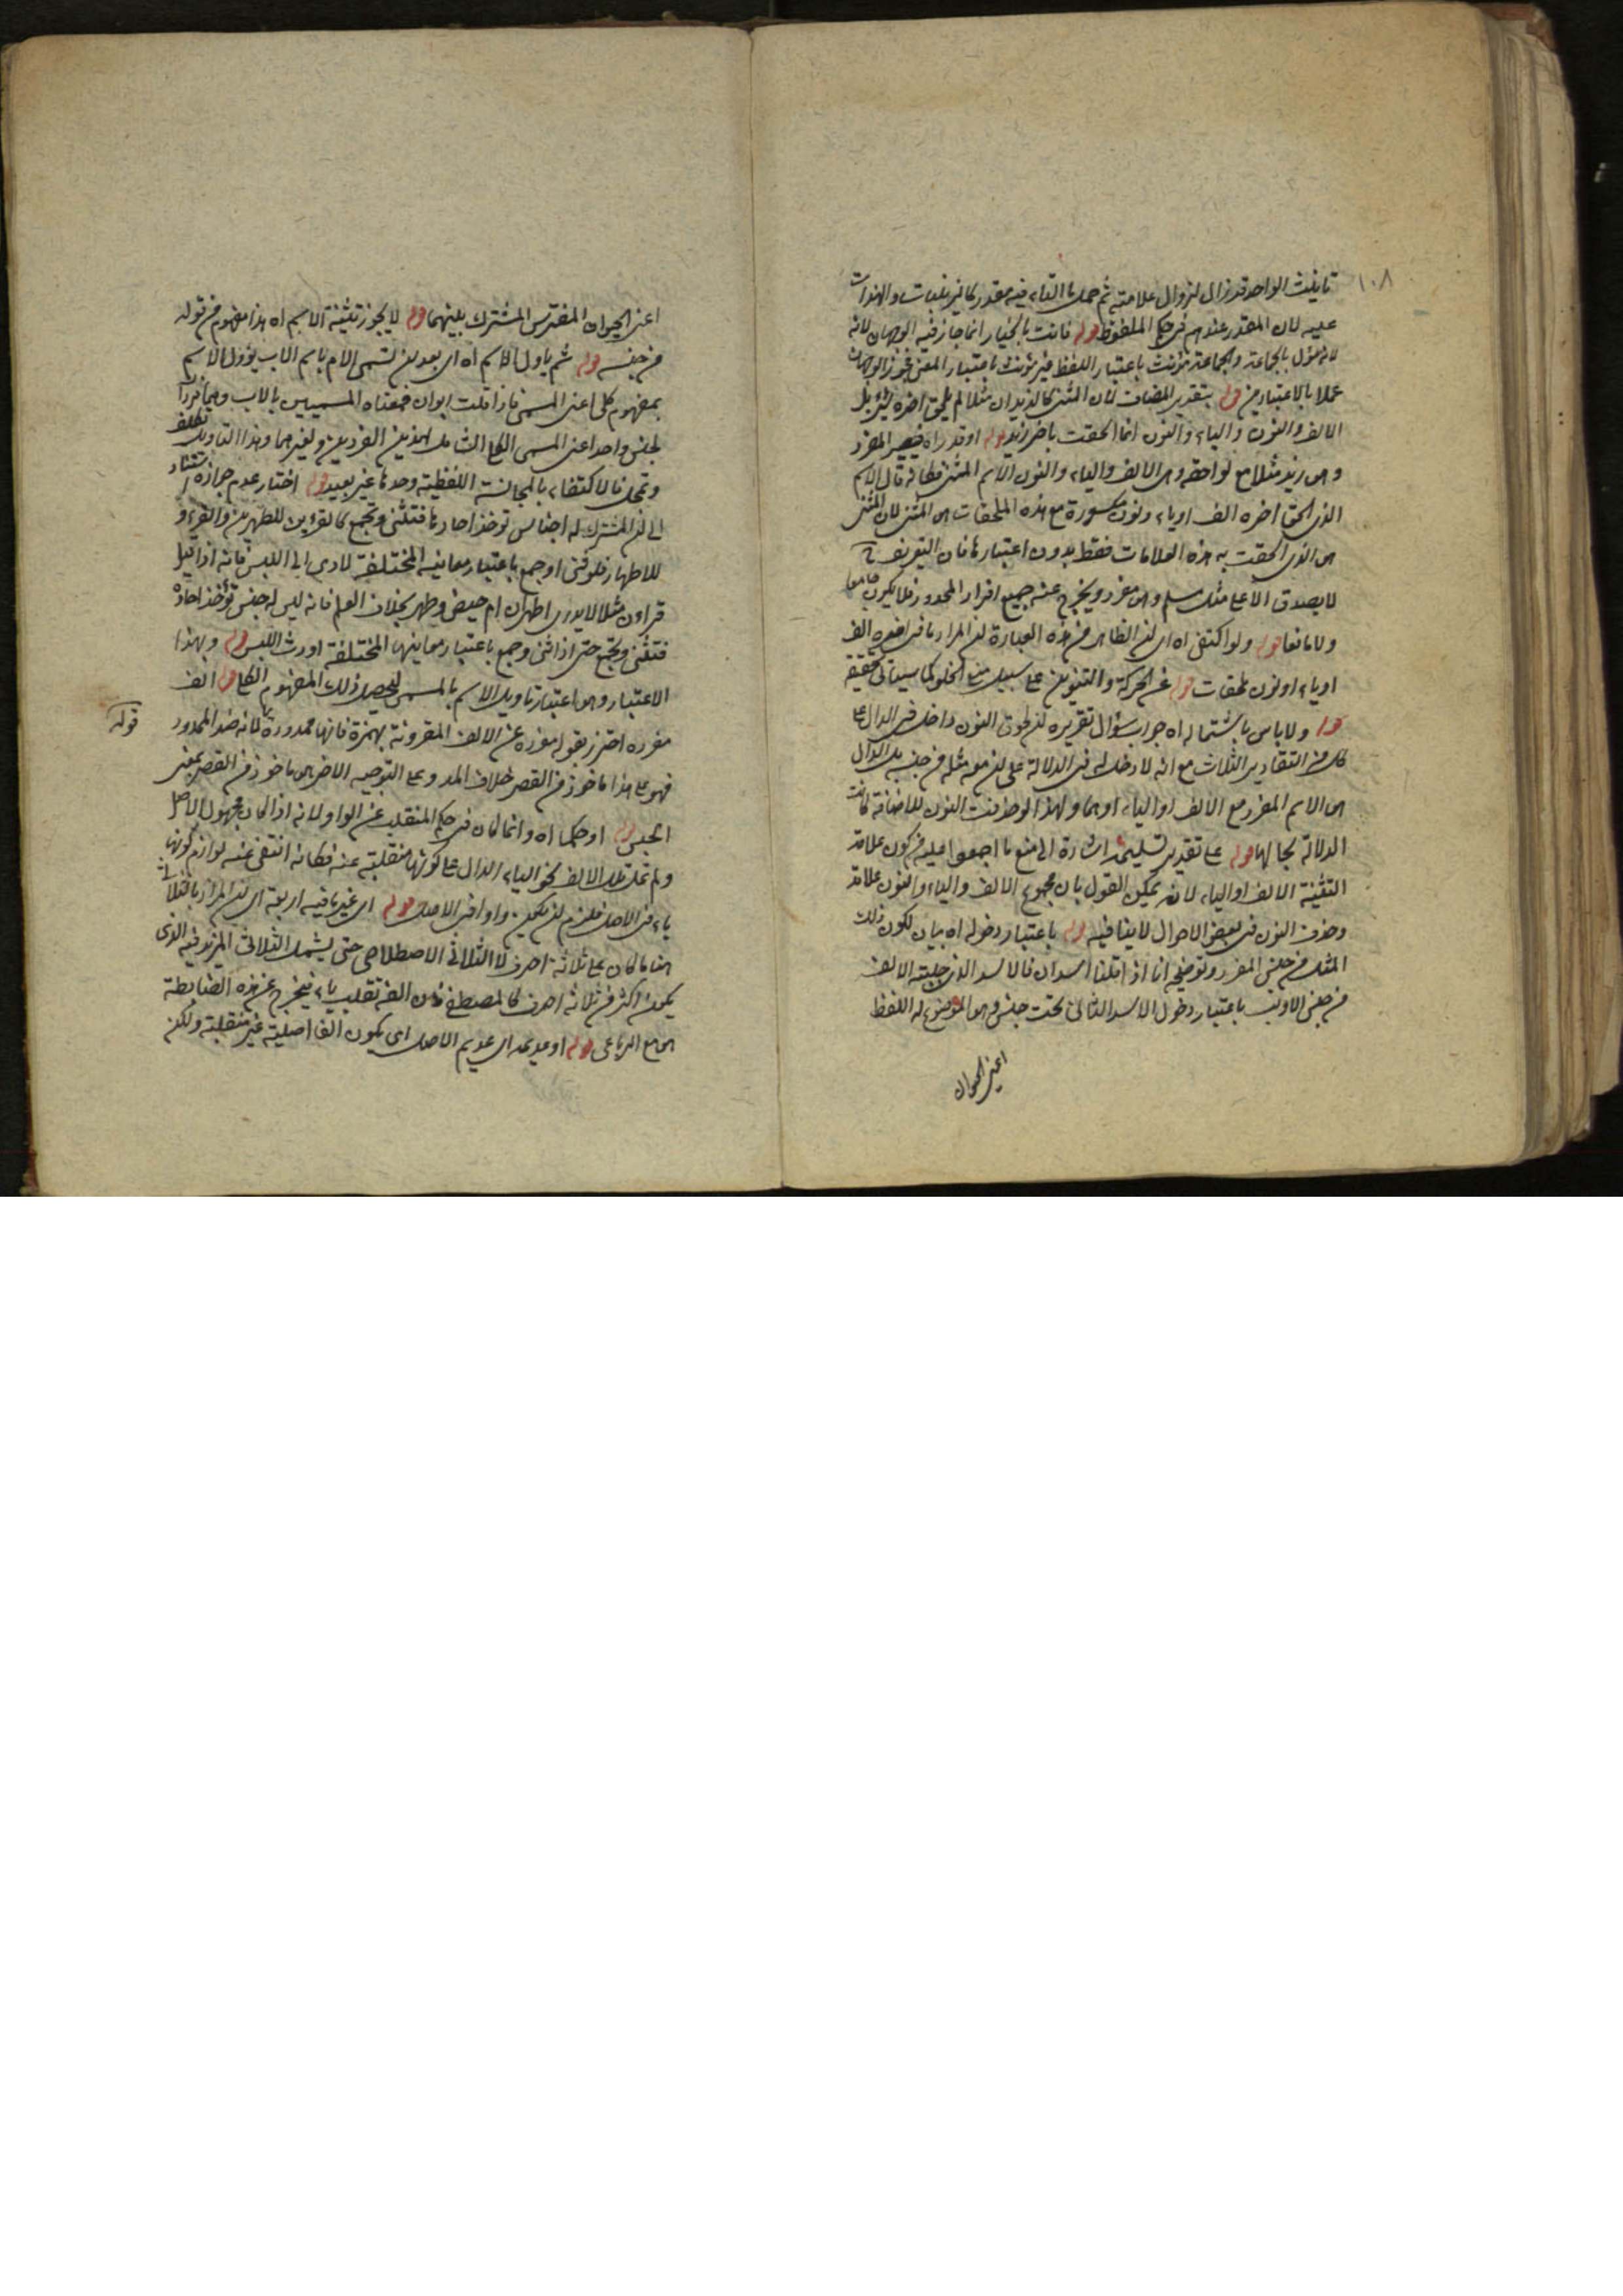 ١٠٨
تانيث الواحد قد زال لزوال علامته ثم حمل ما التاء فيه مقدر كالزينبات والهندات
عليه لان المقدر عندهم في حكم الملفوظ قوله فانت بالخيار انما جاز فيه الوجهان لانه
لانه مؤل بالجماعة والجماعة مؤنث باعتبار اللفظ غير مؤنث باعتبار المعنى فجوز الوجهان
عملا بالاعتبارين قوله بتقدير المضاف لان المثنى كالزيدان مثلا لم يلحق اخره شئ بل
الالف والنون والياء والنون انما الحقت باخر زيد قوله او قدر اه فيصير المفرد
وهو زيد مثلا مع لواحقه وهو الالف والياء والنون الاسم المثنى فكانه قال الاسم
الذى لحق اخره الف او ياء ونون مكسورة مع هذه الملحقات هو المثنى لان المثنى
هو الذى الحقت به هذه العلامات فقط بدون اعتبارها فان التعريف ح
لا يصدق الا على مثل مسلم وهو مفرد ويخرج عنه جميع افراد المحدود فلا يكون جامعا
ولا مانعا قوله ولو اكتفى اه اى لان الظاهر من هذه العبارة ان المراد ما في اخره الف
او ياء او نون ملحقات قوله عن الحركة والتنوين على سبيل منع الخلو كما سيأتى تحقيقه
قوله ولا باس باشتماله اه جواب سؤال تقريره ان لحوق النون داخل في الدال على
كل من التقادير الثلاث مع انه لا دخل له في الدلالة على ان معه مثله من جنسه بل الدال
هو الاسم المفرد مع الالف او الياء او هما ولهذا لو حذفت النون للاضافة كانت
الدلالة بحالها قوله على تقدير تسليمه اشارة الى منع ما اجمعوا عليه من كون علامة
التثنية الالف او الياء لانه يمكن القول بان مجموع الالف والياء والنون علامة
وحذف النون في بعض الاحوال لا ينافيه قوله باعتبار دخوله اه بيان لكون ذلك
المثل من جنس المفرد وتوضيحه انا اذا قلنا اسدان فالاسد الذى جلبته الالف
من جنس الاول باعتبار دخول الاسد الثانى تحت جنس وهو الموضوع له اللفظ
اعنى الحيوان
اعنى الحيوان المفترس المشترك بينهما قوله لا يجوز تثنية الاسم اه هذا مفهوم من قوله
من جنسه قوله ثم ياول الاسم اه اى بعد ان تسمى الام باسم الاب يؤول الاسم
بمفهوم كلى اعنى المسمى فاذا قلت ابوان فمعناه المسميين بالاب وهما فردا
لجنس واحد اعنى المسمى الكلى الشامل لهذين الفردين ولغيرهما وهذا التاويل تكلف
وتمحل فالاكتفاء بالمجانسة اللفظية وحدها غير بعيد قوله اختار عدم جوازه استنادا
الى ان المشترك له اجناس توخذ احادها فتثنى وتجمع كالقرءين للطهرين والقروء
للاطهار فلو ثنى او جمع باعتبار معانيه المختلفة لادى الى اللبس فانه اذا قيل
قراءن مثلا لا يدرى اطهران ام حيض وطهر بخلاف العلم فانه ليس له جنس تؤخذ احاده
فتثنى وتجمع حتى اذا ثنى وجمع باعتبار معانيها المختلفة اورث اللبس قوله وبهذا
الاعتبار وهو اعتبار تاويل الاسم بالمسمى ليحصل ذلك المفهوم الكلى قوله الف
مفرده احترز بقوله مفرده عن الالف المقرونة بهمزة فانها ممدودة لانه ضد الممدود
فهو على هذا ماخوذ من القصر خلاف المد وعلى التوجيه الاخر ماخوذ من القصر بمعنى
الحبس قوله او حكما اه وانما كان في حكم المنقلب عن الواو لانه اذا كان مجهول الاصل
ولم تمل تلك الالف نحو الياء الدال على كونها منقلبة عنه فكانه انتفى عنه لوازم كونها
ياء في الاصل فلزم ان يكون واوا في الاصل قوله اى غير ما فيه اربعة اى ان المراد بالثلاثى
هنا ما كان على ثلاثة احرف لا الثلاثى الاصطلاحى حتى يشمل الثلاثى المزيد فيه الذى
يكون اكثر من ثلاثة احرف كالمصطفى فان الفه تقلب ياء فيخرج عن هذه الضابطة
هو مع الرباعى قوله او عديمه اى عديم الاصل اى يكون الفا اصلية غير منقلبة ولكن
قوله